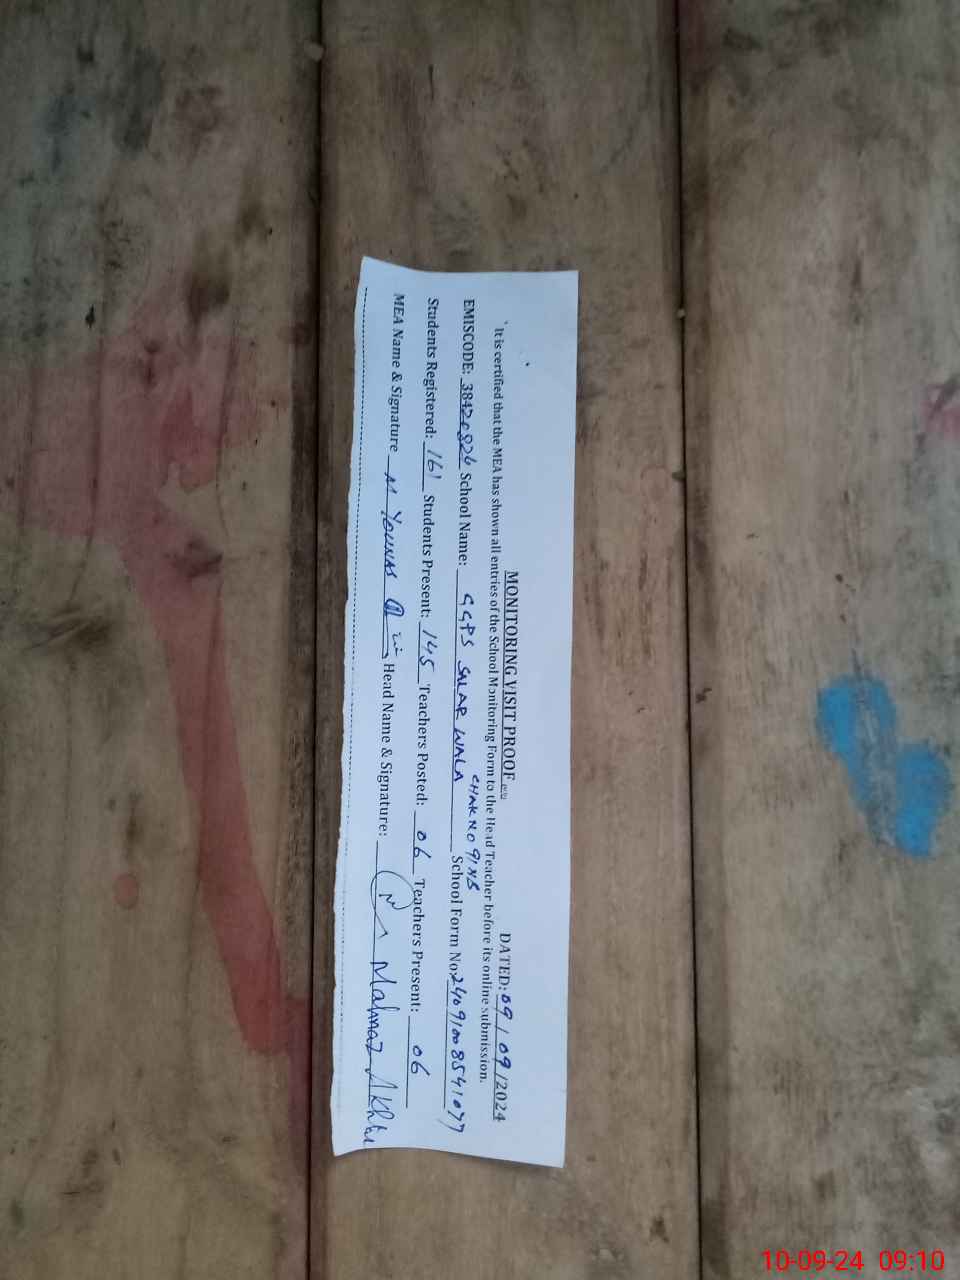 MONITORING VISIT PROOF
DATED: 09/09/2024
It is certified that the MEA has shown all entries of the School Monitoring Form to the Head Teacher before its online submission.
EMISCODE: 38420826 School Name: GGPS SALAR WALA CHAK NO 91NB School Form No: 24091008541077
Students Registered: 161 Students Present: 145 Teachers Posted: 06 Teachers Present: 06
MEA Name & Signature M YOUNAS Head Name & Signature: Mahnaz Akhtar
10-09-24 09:10